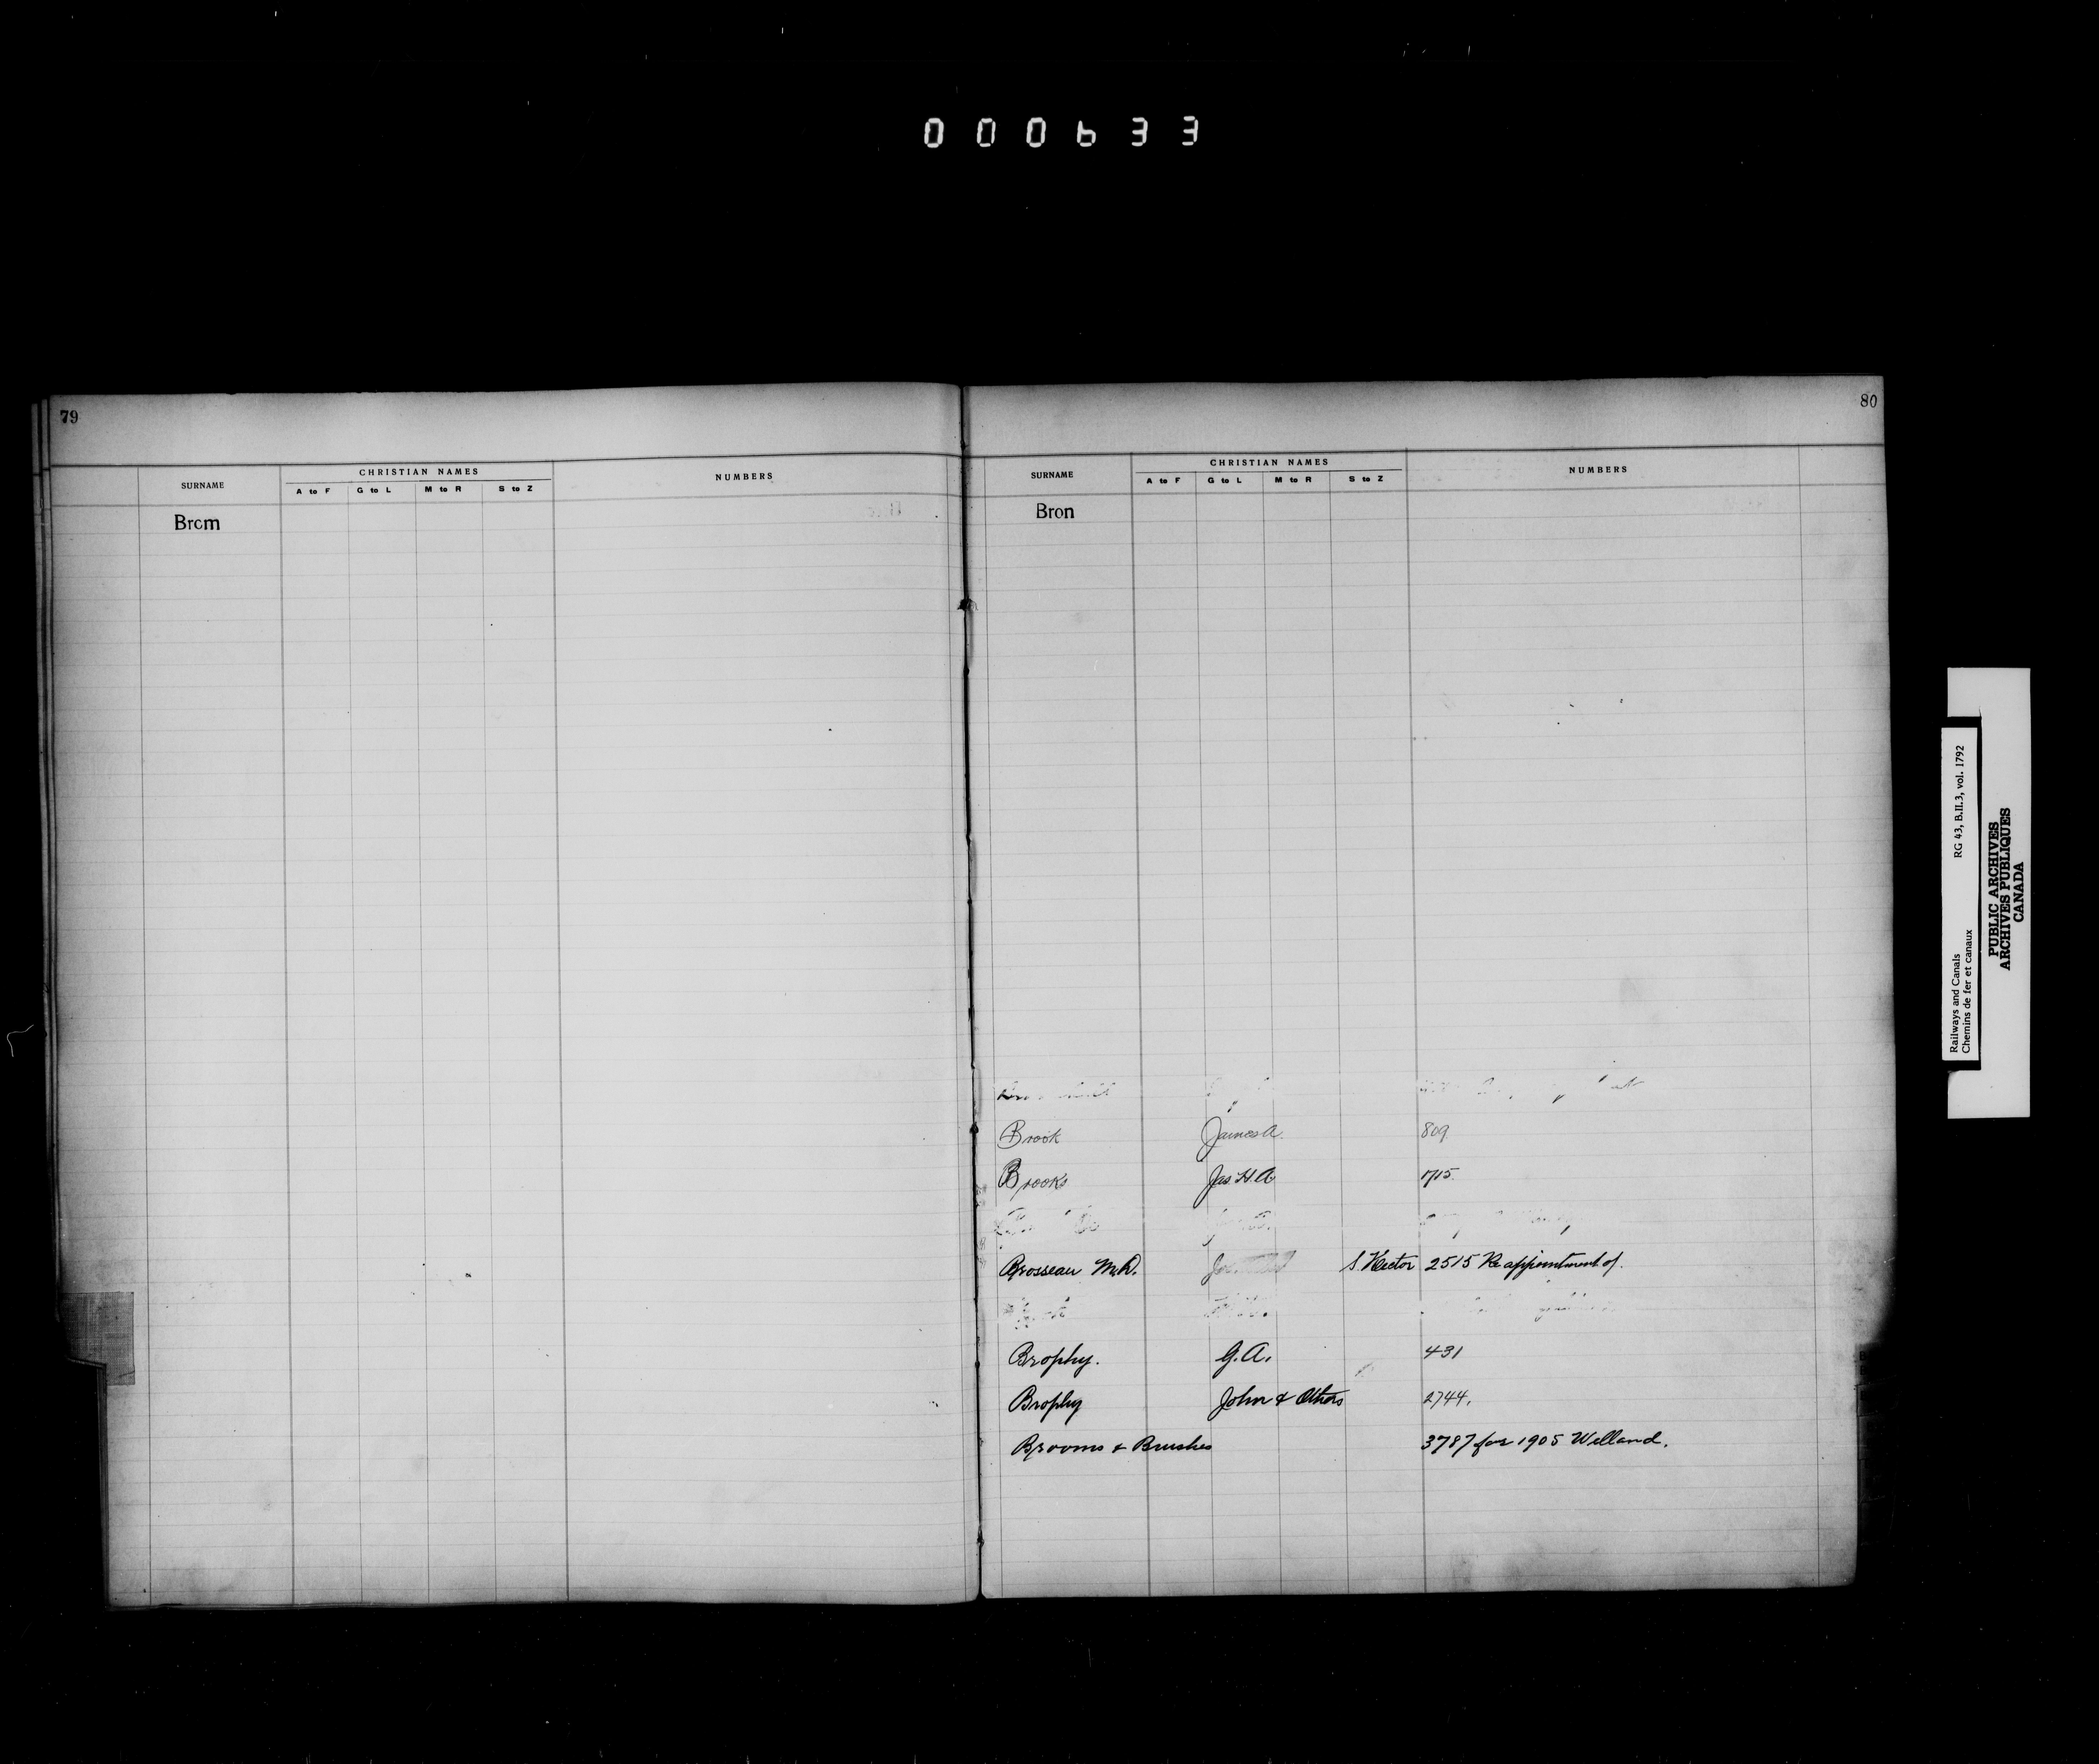 000633
79
SURNAME
CHRISTIAN NAMES
A to F G to L M to R S to Z
NUMBERS
Brom
80
SURNAME
CHRISTIAN NAMES
A to F G to L M to R S to Z
NUMBERS
Bron
Brook James A. 809
Brooks Jas H.A 1715
Brosseau M.R. S. Hector 2515 Re appointment of.
Brophy. G.A. 431
Brophy John & Others 2744.
Brooms & Brushes 3787 for 1905 Welland.
Railways and Canals RG 43, B.II.3, vol. 1792
Chemins de fer et canaux
PUBLIC ARCHIVES
ARCHIVES PUBLIQUES
CANADA